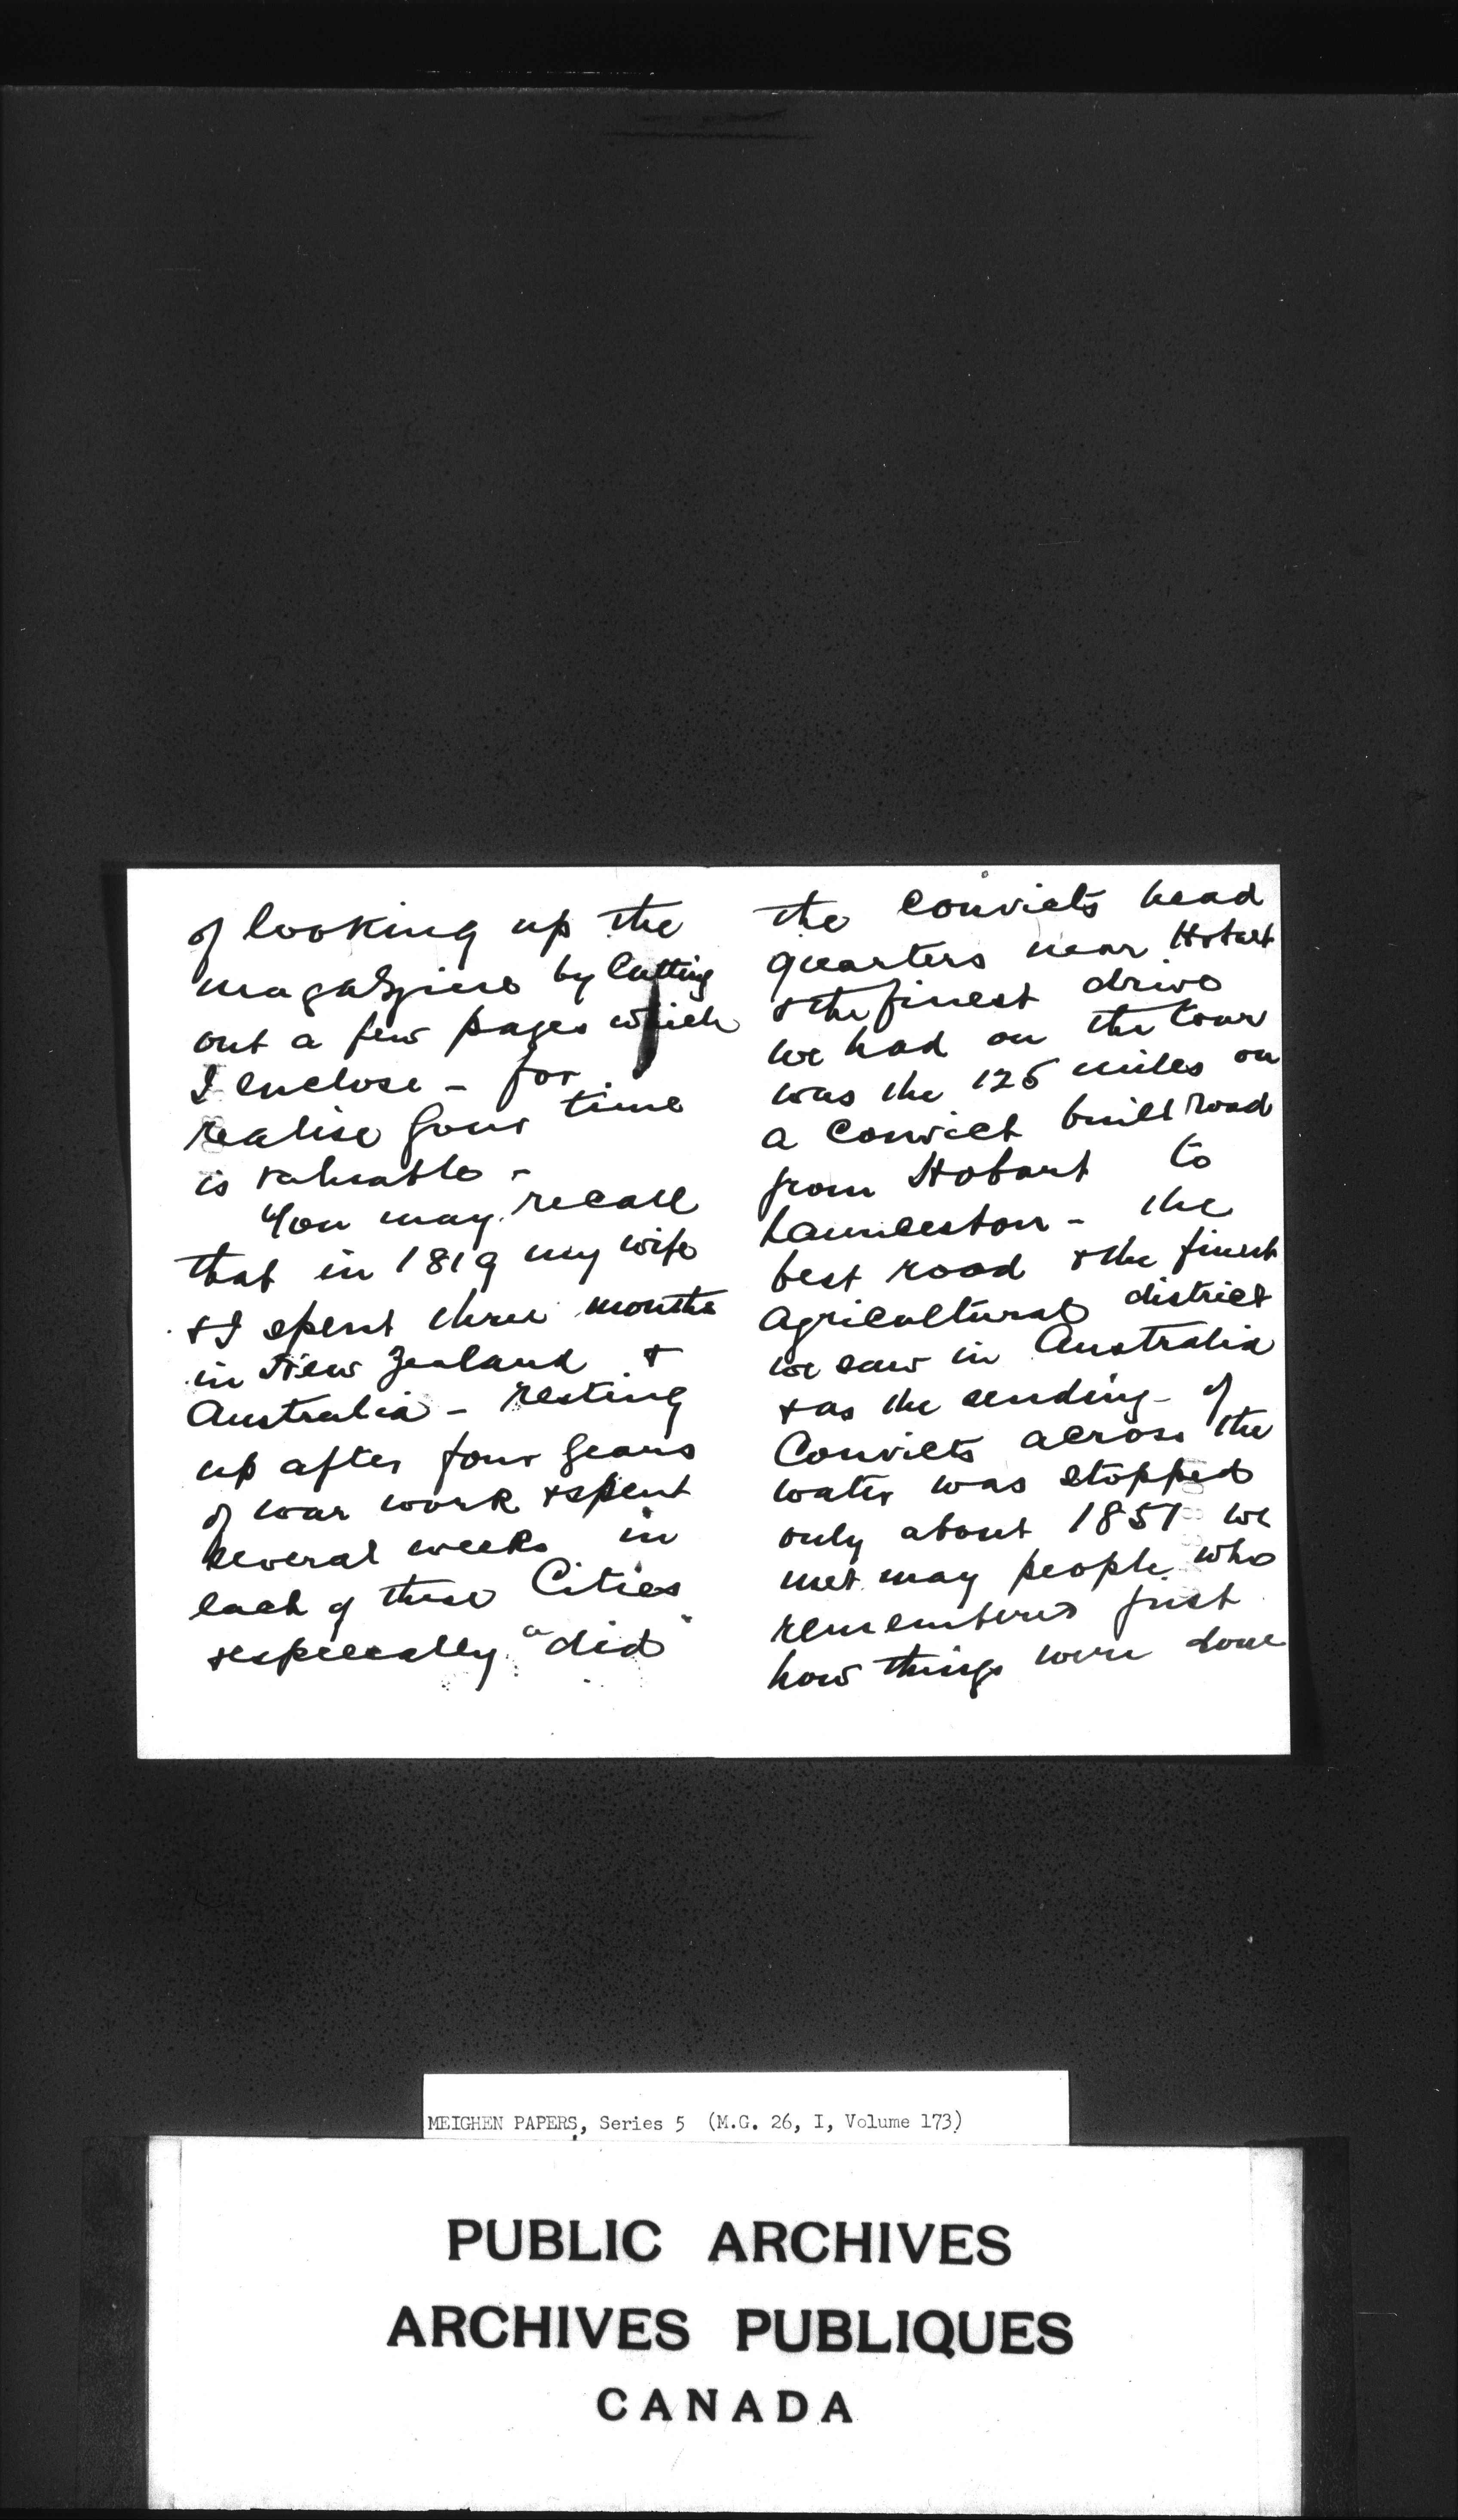 of looking up the
magazine by Cutting
out a few pages which
I enclose - for
realise your time
is valuable -
You may recall
that in 1819 my wife
& I spent three months
in New Zealand &
Australia - resting
up after four years
of war work & spent
several weeks in
each of these Cities
& especially "did"
the convicts head
quarters near Hobart
& the finest drive
we had on the tour
was the 125 miles on
a convict built road
from Hobart to
Launceston - the
best road & the finest
agricultural district
we saw in Australia
& as the sending of
Convicts across the
water was stopped
only about 1851 we
met may people who
remembered just
how things were done
MEIGHEN PAPERS, Series 5 (M.G. 26, I, Volume 173)
PUBLIC ARCHIVES
ARCHIVES PUBLIQUES
CANADA